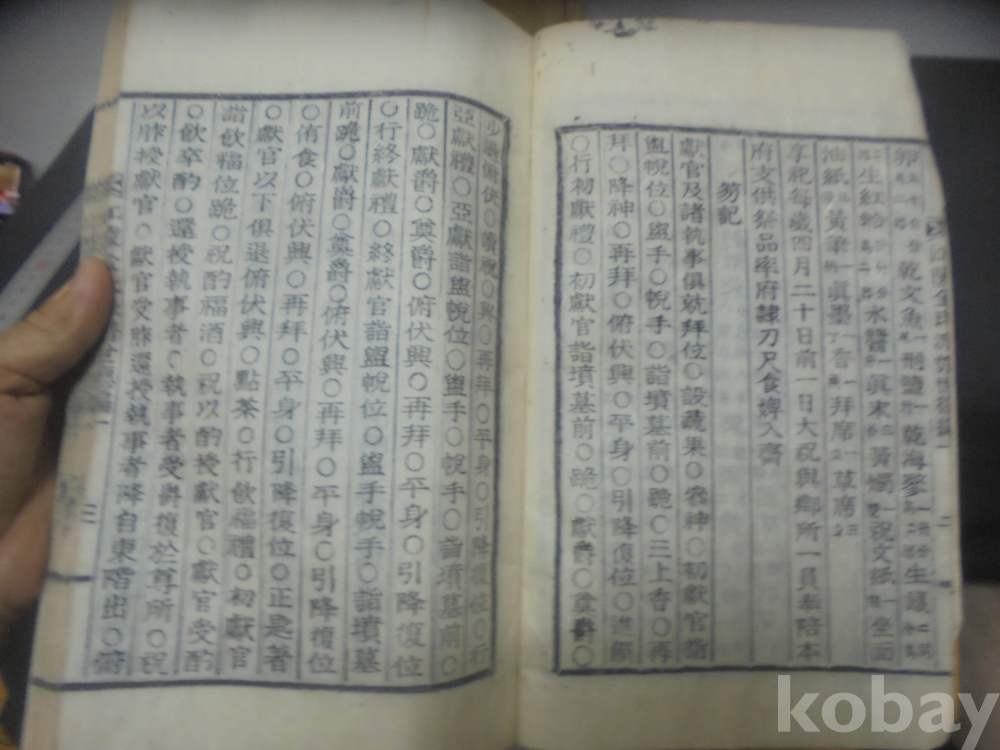 乾文魚一 刑鹽一 乾海麥一 生
水醬 眞末 黃燭 祝文紙一 坐面
油紙 黃筆一 眞墨一 香一 拜席一 草席
享祀每歲四月二十日前一日大祝與鄕所一員奉陪本
府支供祭品率府隷刀尺食婢入齋
笏記
獻官及諸執事俱就拜位○設蔬果○參神○初獻官詣
盥帨位○盥手○帨手○詣墳墓前○跪○三上香○再
拜○降神○再拜○俯伏興○平身○引降復位○進饌
○行初獻禮○初獻官詣墳墓前○跪○獻爵○奠爵○
俯伏○讀祝○興○再拜○平身○引降復位○行
亞獻禮○亞獻詣盥帨位○盥手○帨手○詣墳墓前○
跪○獻爵○奠爵○俯伏興○再拜○平身○引降復位
○行終獻禮○終獻官詣盥帨位○盥手帨手○詣墳墓
前跪○獻爵○奠爵○俯伏興○再拜○平身○引降復位
○侑食○俯伏興○再拜○平身○引降復位○正匙著
○獻官以下俱退俯伏興○點茶○行飮福禮○初獻官
詣飮福位跪○祝酌福酒○祝以酌授獻官○獻官受酌
○飮卒酌○還授執事者○執事者受爵復於尊所○祝
以胙授獻官○獻官受胙還授執事者降自東階出○俯
三
kobay